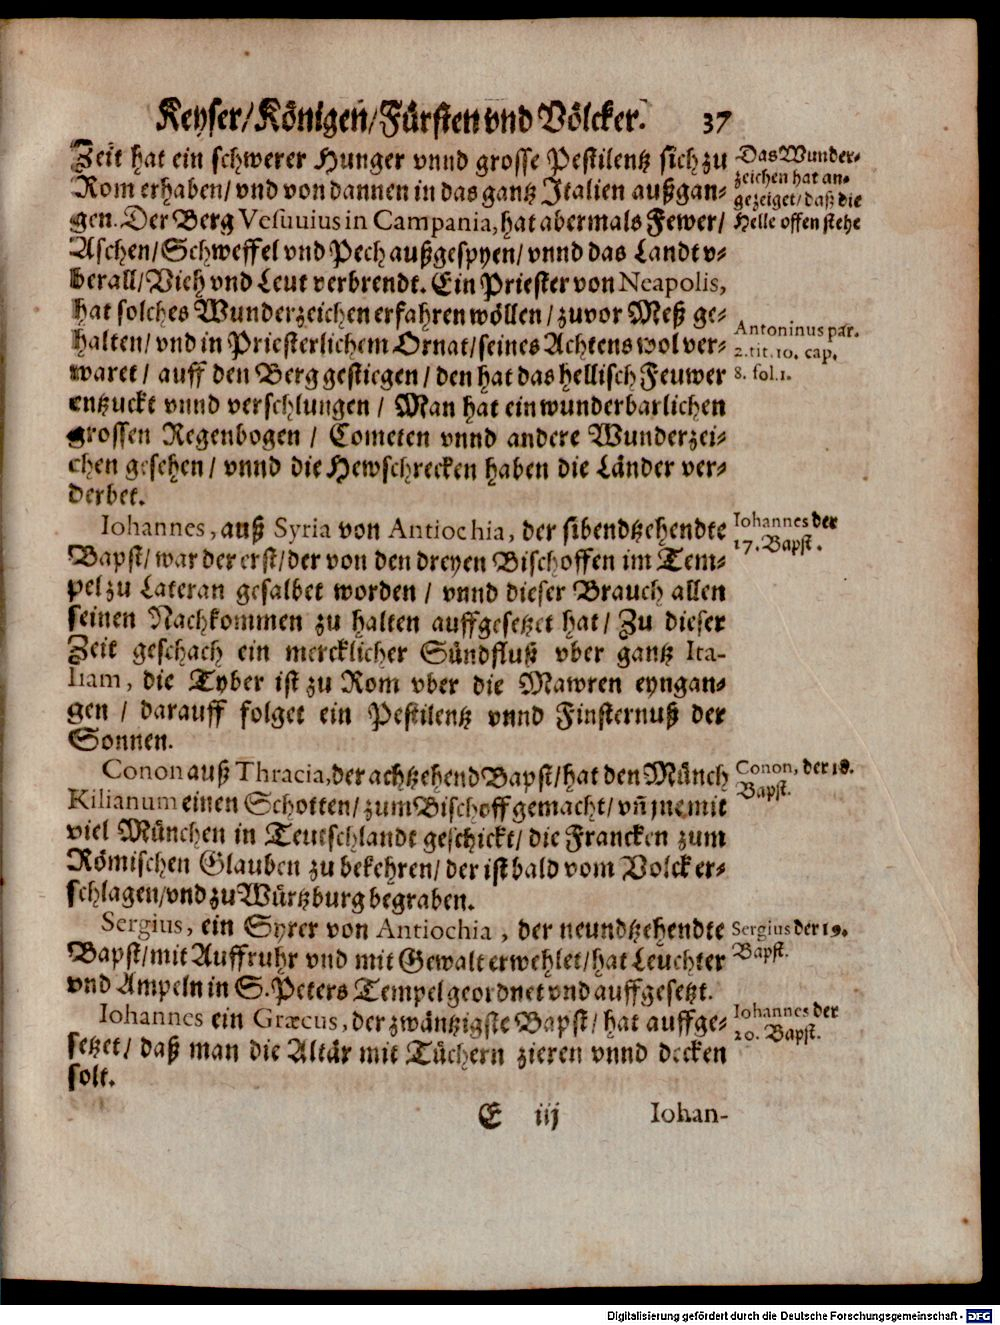 Keyser/Königen/Fürsten vnd Völcker. 37
Zeit hat ein schwerer Hunger vnnd grosse Pestilentz sich zu
Rom erhaben/ vnd von dannen in das gantz Italien außgan-
gen. Der Berg Vesuuius in Campania, hat abermals Fewer/
Aschen/Schweffel vnd Pech außgespyen/ vnnd das Landt v-
berall/Vieh vnd Leut verbrendt. Ein Priester von Neapolis,
hat solches Wunderzeichen erfahren wöllen/ zuvor Meß ge-
halten/ vnd in Priesterlichem Ornat/seines Achtens wol ver-
waret/ auff den Berg gestiegen/ den hat das hellisch Feuwer
entzuckt vnnd verschlungen/ Man hat ein wunderbarlichen
grossen Regenbogen/ Cometen vnnd andere Wunderzei-
chen gesehen/ vnnd die Hewschrecken haben die Länder ver-
derbet.
Das Wunder-
zeichen hat an-
gezeiget/ daß die
Helle offen stehe
Antoninus par.
2. tit. 10. cap.
8. fol. 1.
Iohannes, auß Syria von Antiochia, der sibendtzehendte
Bapst/ war der erst/ der von den dreyen Bischoffen im Tem-
pel zu Lateran gesalbet worden/ vnnd dieser Brauch allen
seinen Nachkommen zu halten auffgesetzet hat/ Zu dieser
Zeit geschach ein mercklicher Sündfluß vber gantz Ita-
liam, die Tyber ist zu Rom vber die Mawren eyngan-
gen/ darauff folget ein Pestilentz vnnd Finsternuß der
Sonnen.
Iohannes der
17. Bapst.
Conon auß Thracia, der achtzehend Bapst/ hat den Münch
Kilianum einen Schotten/ zum Bischoff gemacht/ vñ jne mit
viel München in Teutschlandt geschickt/ die Francken zum
Römischen Glauben zu bekehren/ der ist bald vom Volck er-
schlagen/vnd zu Würtzburg begraben.
Conon, der 18.
Bapst.
Sergius, ein Syrer von Antiochia, der neundtzehendte
Bapst/mit Auffruhr vnd mit Gewalt erwehlet/ hat Leuchter
vnd Ampeln in S. Peters Tempel geordnet vnd auffgesetzt.
Sergius der 19.
Bapst.
Iohannes ein Græcus, der zwäntzigste Bapst/ hat auffge-
setzet/ daß man die Altär mit Tüchern zieren vnnd decken
solt.
Iohannes der
20. Bapst.
E iij Iohan-
Digitalisierung gefördert durch die Deutsche Forschungsgemeinschaft - DFG